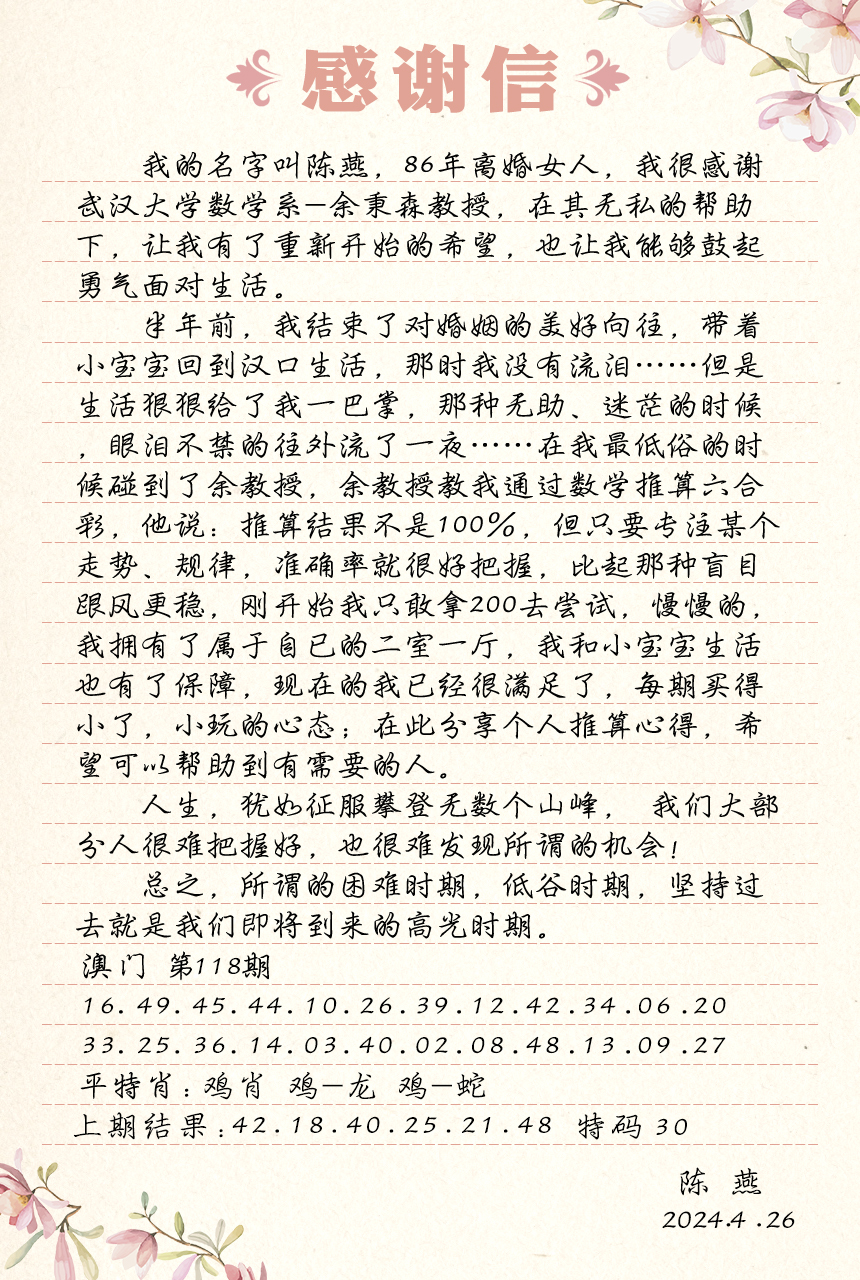 感谢信
我的名字叫陈燕，86年离婚女人，我很感谢
武汉大学数学系—余秉森教授，在其无私的帮助
下，让我有了重新开始的希望，也让我能够鼓起
勇气面对生活。
半年前，我结束了对婚姻的美好向往，带着
小宝宝回到汉口生活，那时我没有流泪……但是
生活狠狠给了我一巴掌，那种无助、迷茫的时候
，眼泪不禁的往外流了一夜……在我最低俗的时
候碰到了余教授，余教授教我通过数学推算六合
彩，他说：推算结果不是100%，但只要专注某个
走势、规律，准确率就很好把握，比起那种盲目
跟风更稳，刚开始我只敢拿200去尝试，慢慢的，
我拥有了属于自已的二室一厅，我和小宝宝生活
也有了保障，现在的我已经很满足了，每期买得
小了，小玩的心态；在此分享个人推算心得，希
望可以帮助到有需要的人。
人生，犹如征服攀登无数个山峰， 我们大部
分人很难把握好，也很难发现所谓的机会！
总之，所谓的困难时期，低谷时期，坚持过
去就是我们即将到来的高光时期。
澳门 第118期
16.49.45.44.10.26.39.12.42.34.06.20
33.25.36.14.03.40.02.08.48.13.09.27
平特肖：鸡肖 鸡—龙 鸡—蛇
上期结果：42.18.40.25.21.48 特码 30
陈 燕
2024.4.26